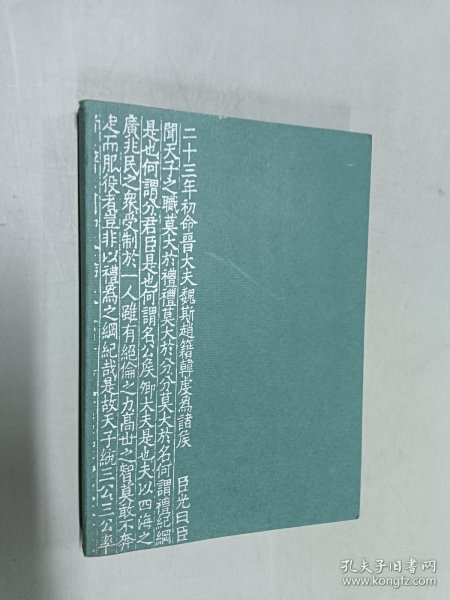 二十三年初命晉大夫魏斯趙籍韓虔爲諸侯 臣光曰臣
聞天子之職莫大於禮禮莫大於分分莫大於名何謂禮紀綱
是也何謂分君臣是也何謂名公侯卿大夫是也夫以四海之
廣兆民之衆受制於一人雖有絕倫之力高世之智莫敢不奔
走而服役者豈非以禮爲之綱紀哉是故天子統三公三公率
孔夫子旧书网
www.kongfz.com